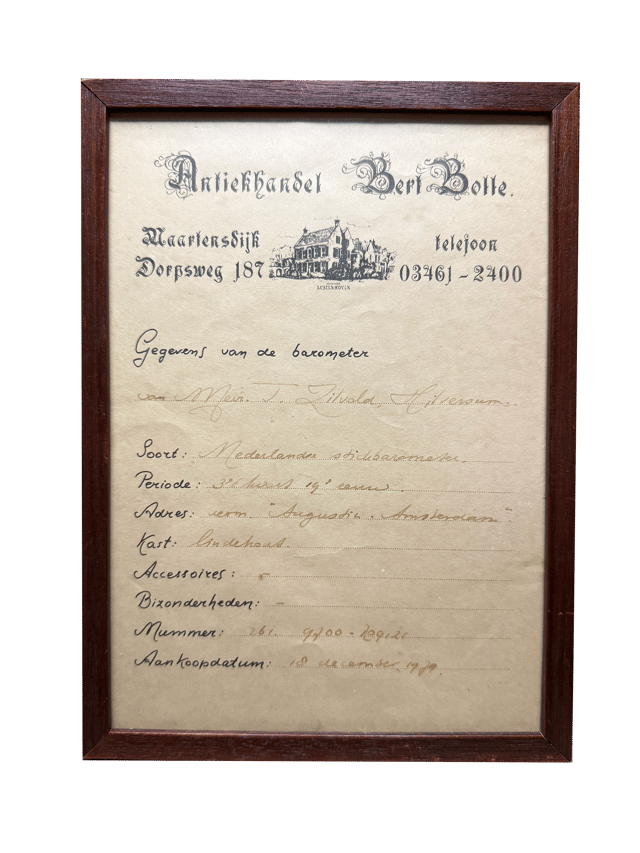 Antiekhandel Bert Bolle.
Maartensdijk telefoon
Dorpsweg 187 03461-2400
Gegevens van de barometer
van T. Hilversum.
Soort: Nederlandse stickbarometer.
Periode: 3e kwart 19e eeuw.
Adres: "Augustin. Amsterdam"
Kast: lindehout.
Accessoires: -
Bizonderheden: -
Nummer: 261.
Aankoopdatum: 18 december 1979.